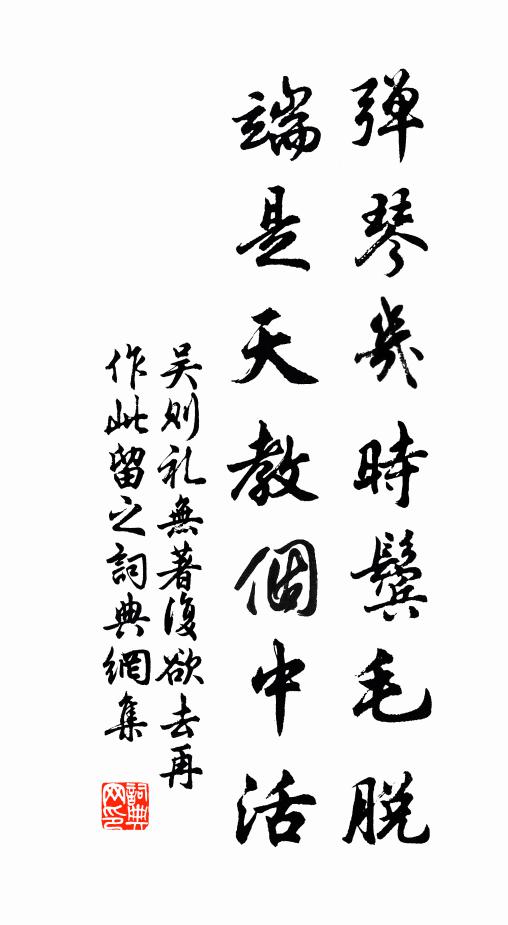 弹琴幾時鬓毛脫
端是天教個中活
吴则礼無著復欲去再
作此留之詞典網集
詞典网印